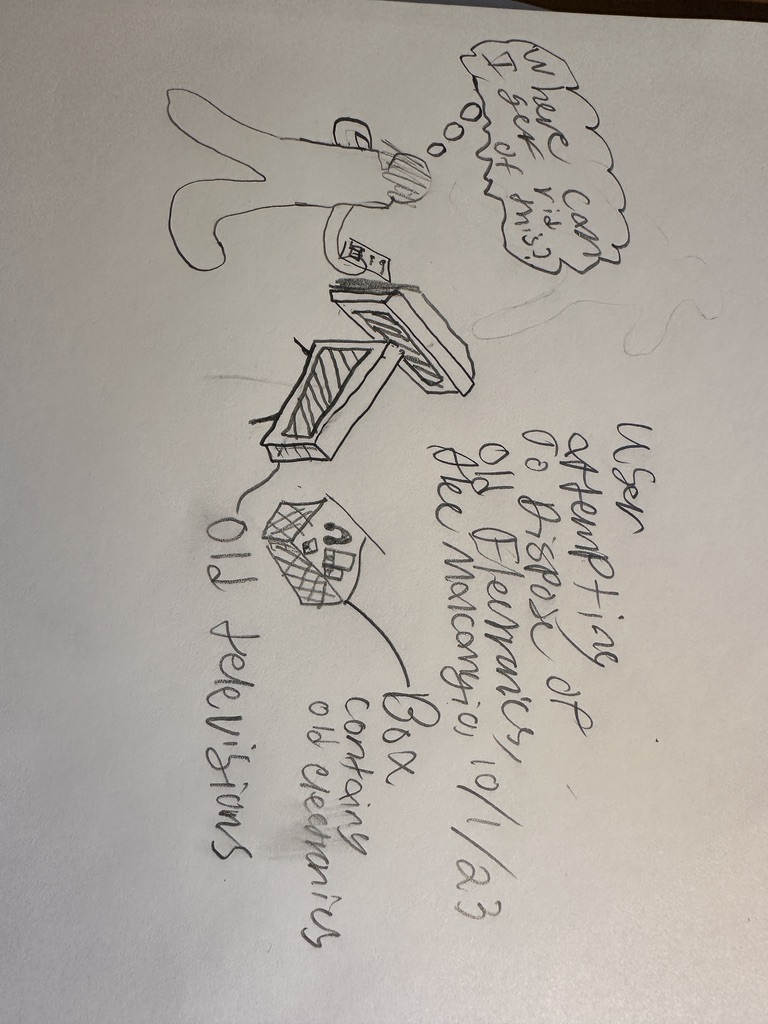 Where can
I get rid
of this?
User
attempting
To Dispose of
old Electronics,
10/1/23
Box
containing
old electronics
old televisions